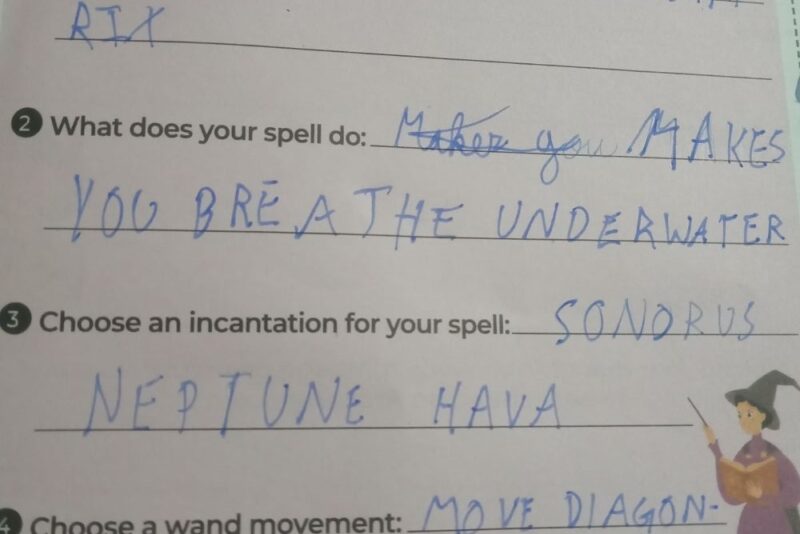 RIX
2 What does your spell do: Makes you MAKES
YOU BREATHE UNDERWATER
3 Choose an incantation for your spell: SONORUS
NEPTUNE HAVA
4 Choose a wand movement: MOVE DIAGON-